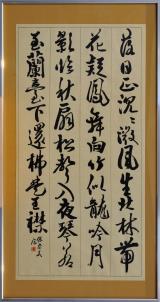 落日正沉沉微風生北林帶
花疑鳳舞向竹似龍吟月
影臨秋扇松聲入夜琴若
至蘭臺下還拂楚王襟